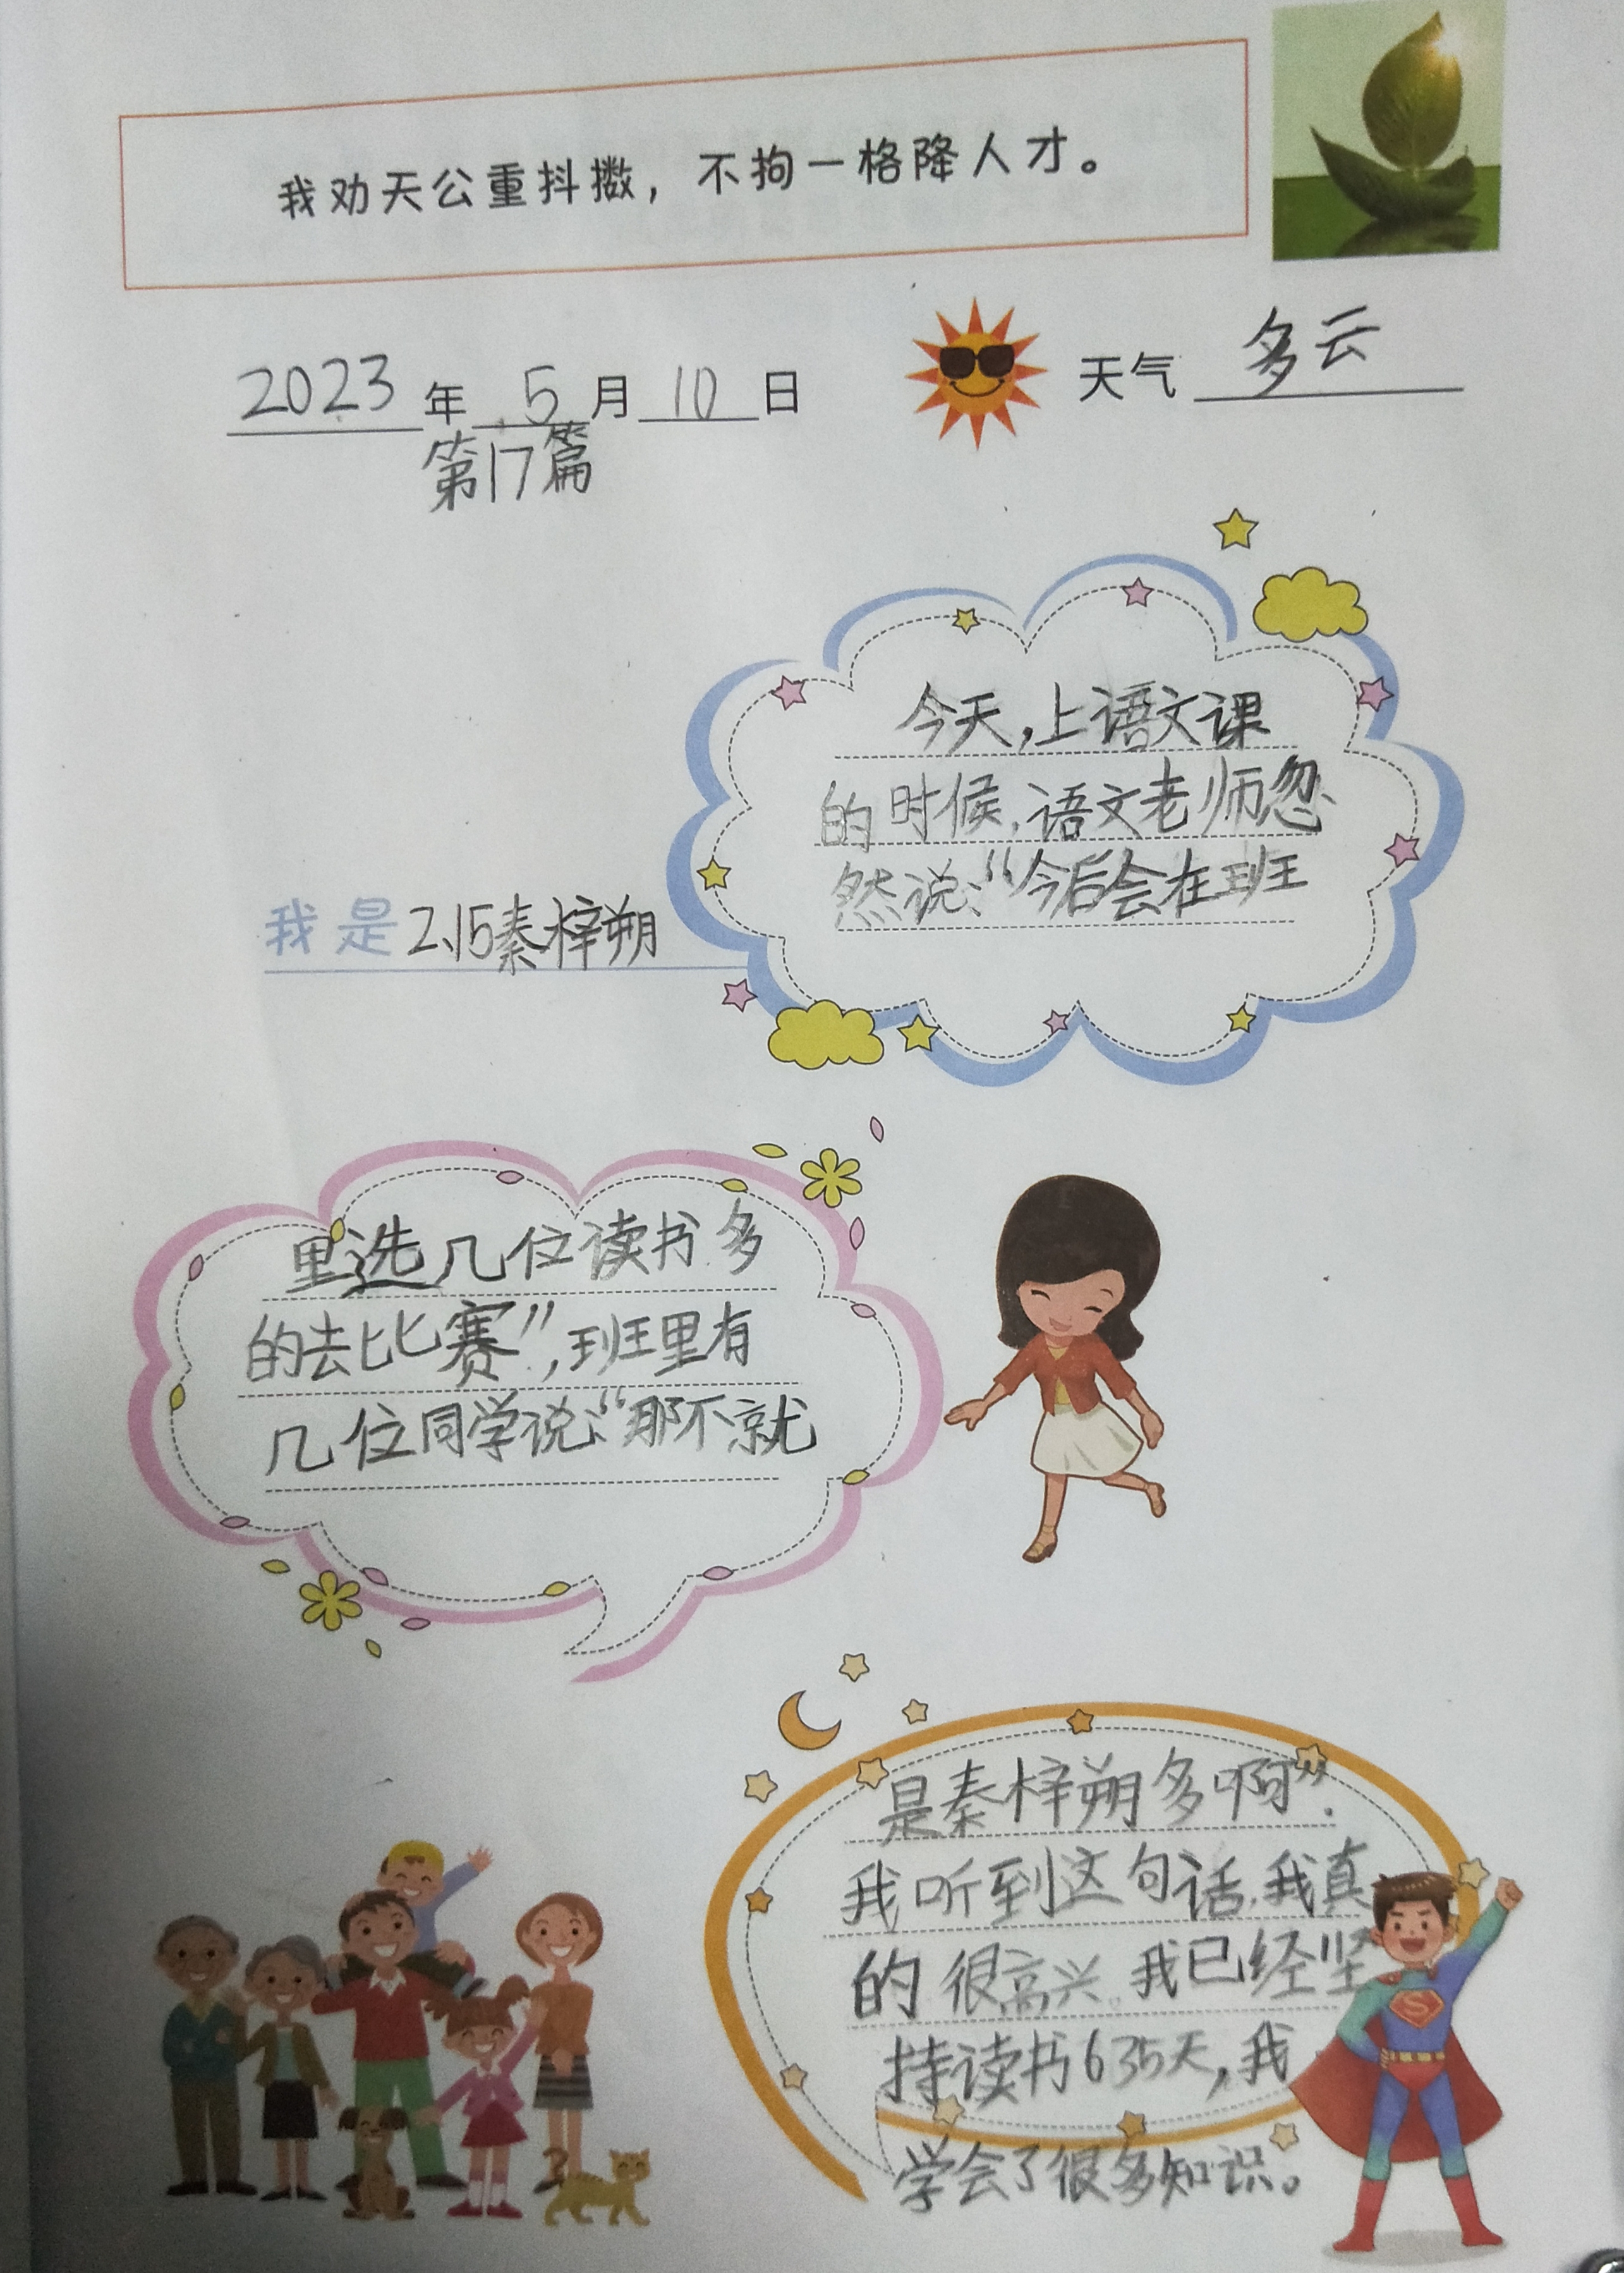 我劝天公重抖擞，不拘一格降人才。
2023年5月10日 天气 多云
第17篇
今天，上语文课
的时候，语文老师忽
然说：“今后会在班
我是2.15秦梓朔
里选几位读书多
的去比赛”，班里有
几位同学说：“那不就
是秦梓朔多啊”.
我听到这句话，我真
的很高兴。我已经坚
持读书635天，我
学会了很多知识。
S